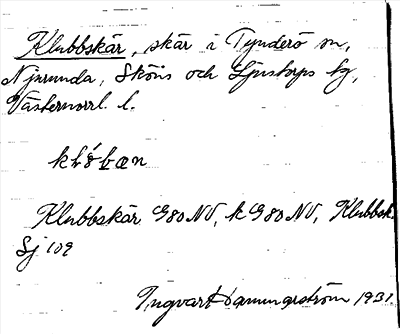 Klubbskär, skär i Tynderö sn,
Njurunda, Sköns och Ljustorps tg,
Västernorrl. l.
Klubbskär G80NV, k G80NV, Klubbsk.
Sj 109
Ingvart Dammgrström 1931